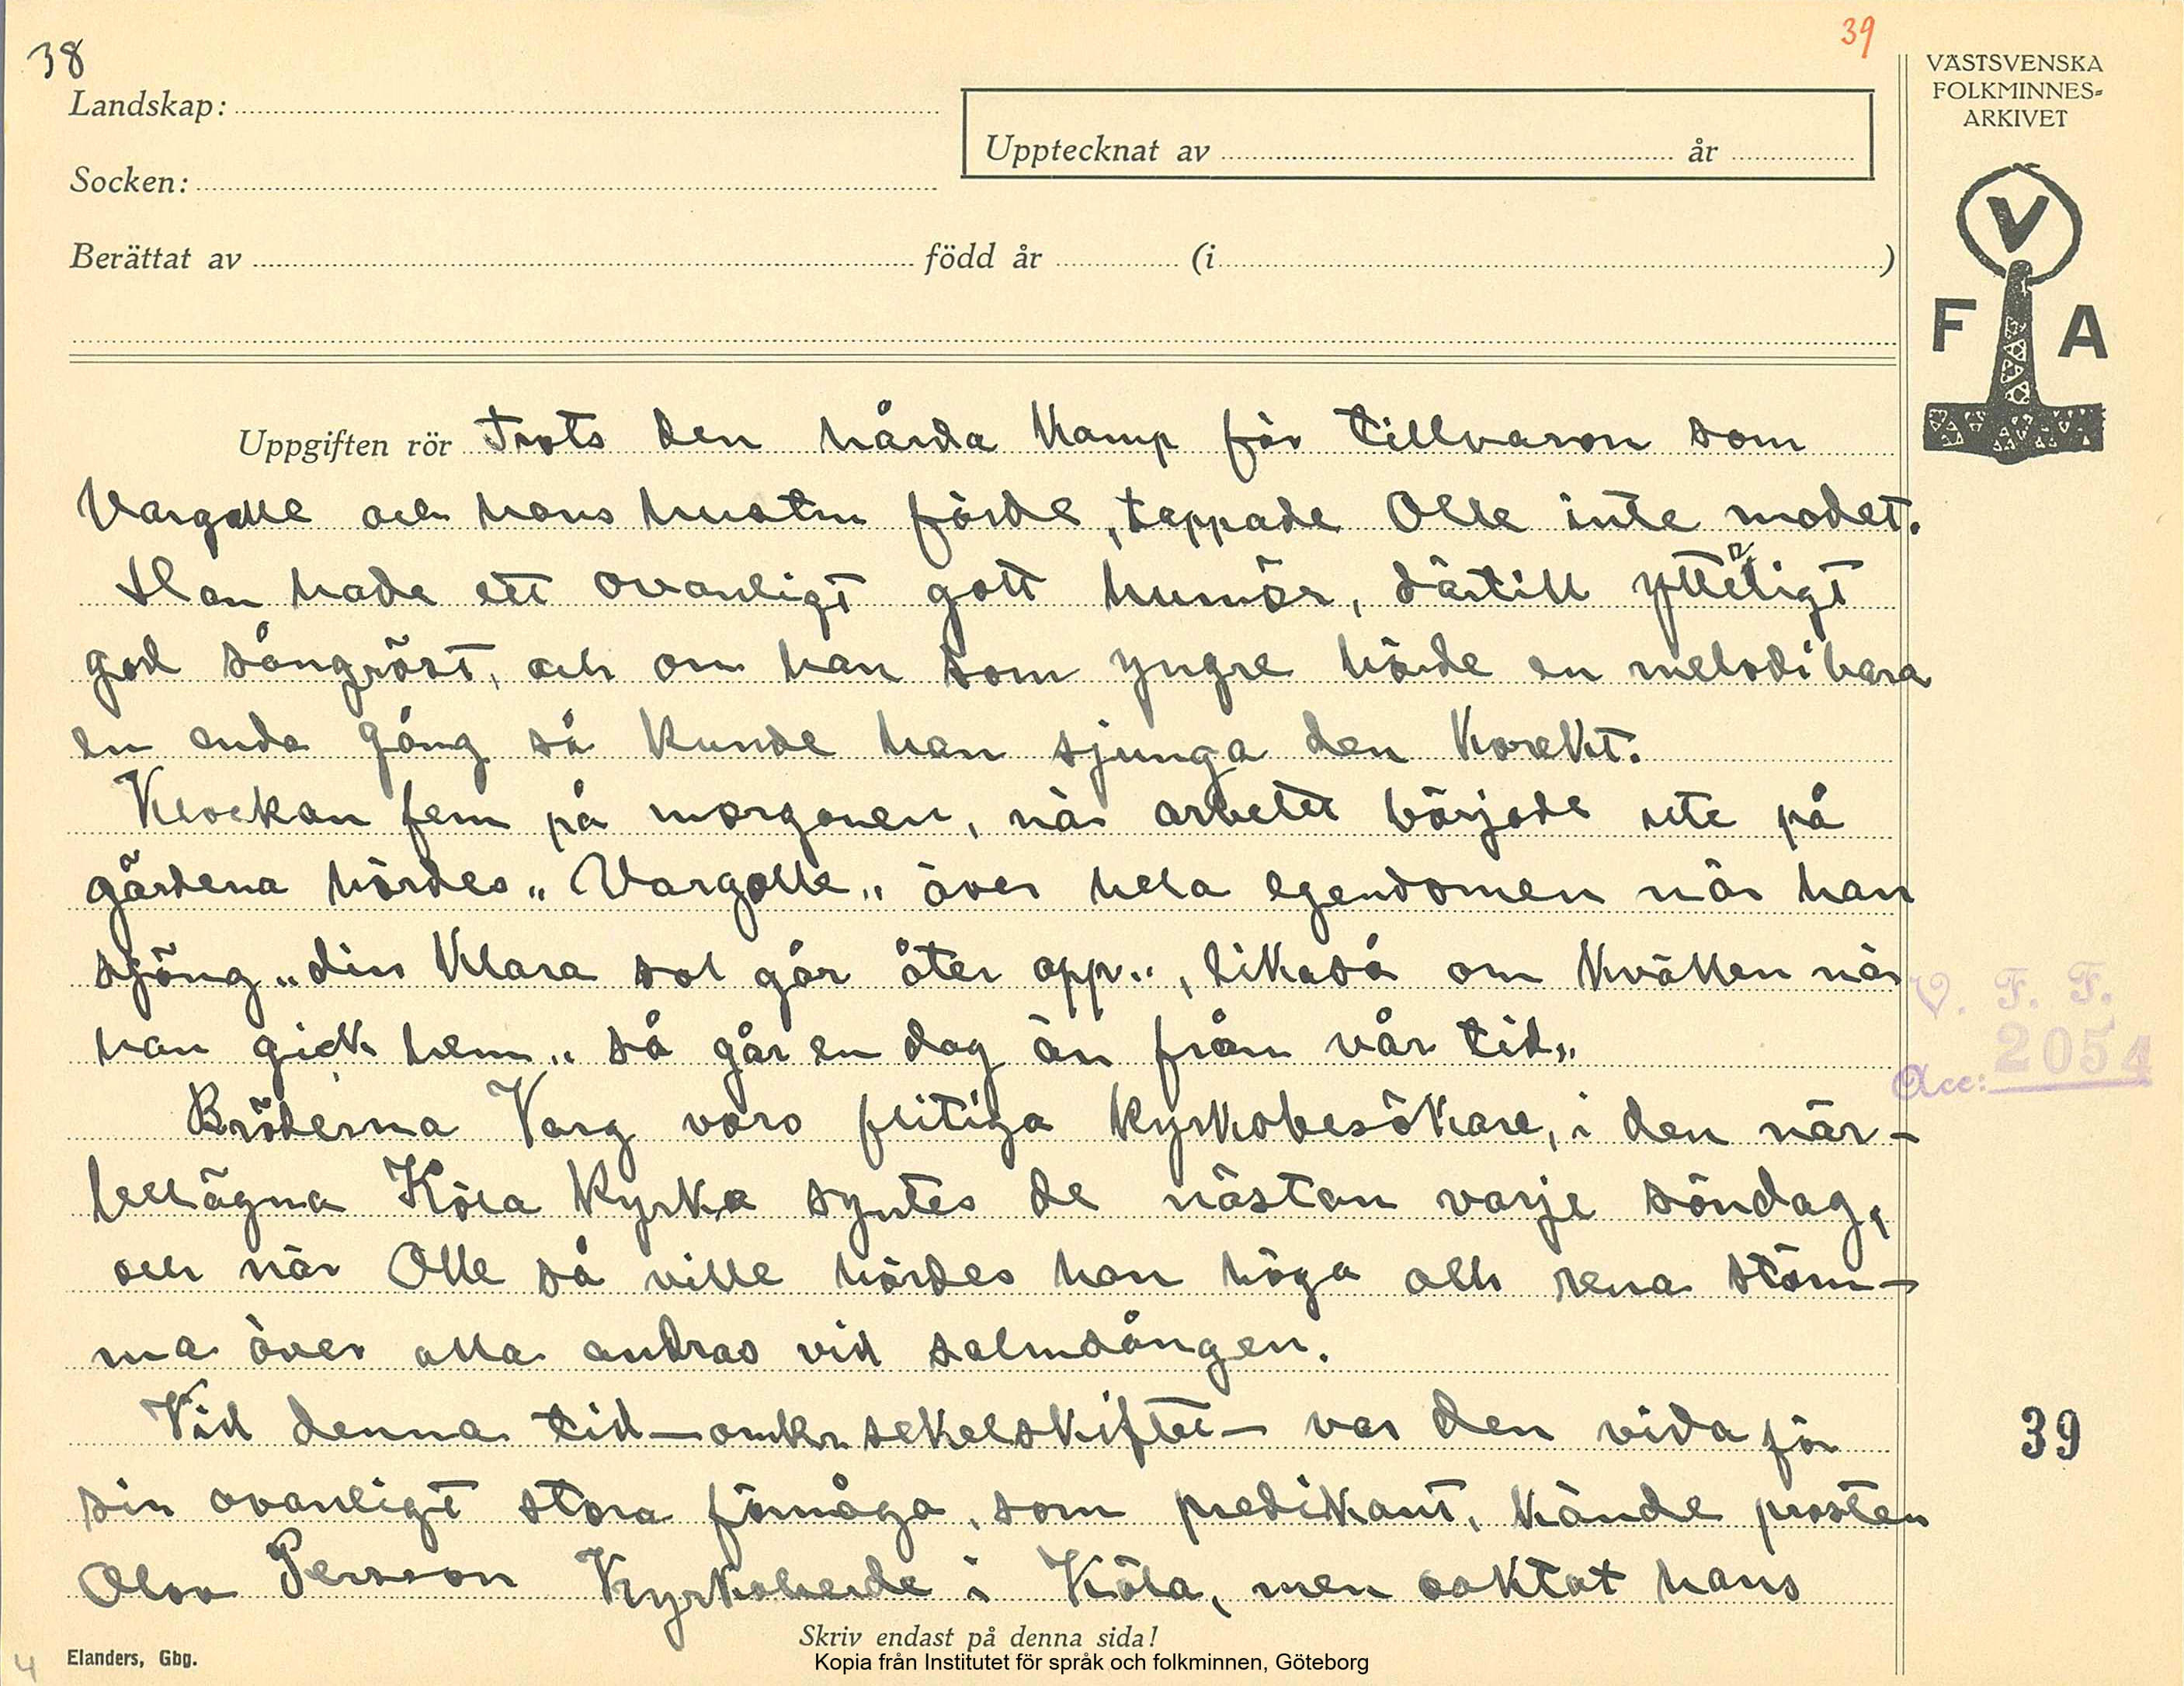 38
39
VÄSTSVENSKA
FOLKMINNES-
ARKIVET
Landskap:
Upptecknat av år
Socken:
Berättat av född år (i )
V
F A
Uppgiften rör Trots den hårda kamp för tillvaron som
Vargolle och hans hustru förde, tappade Olle inte modet.
Han hade ett ovanligt gott humör, därtill ytterligt
god sångröst, och om han som yngre hörde en melodi bara
en enda gång så kunde han sjunga den korekt.
Klockan fem på morgonen, när arbetet började ute på
gärdena hördes „Vargolle„ över hela egendomen när han
sjöng „din klara sol går åter opp„, likaså om kvällen när
han gick hem „så går en dag än från vår tid„
Bröderna Varg voro flitiga kyrkobesökare, i den när-
belägna Köla kyrka syntes de nästan varje söndag,
och när Olle så ville hördes han höga och rena stäm-
ma över alla andras vid salmsången.
Vid denna tid — omkr sekelskiftet — var den vida för
sin ovanligt stora förmåga, som predikant, kände prosten
Olov Persson Kyrkoherde i Köla, men oaktat hans
V. F. F.
Acc: 2054
39
Skriv endast på denna sida!
4
Elanders, Gbg.
Kopia från Institutet för språk och folkminnen, Göteborg